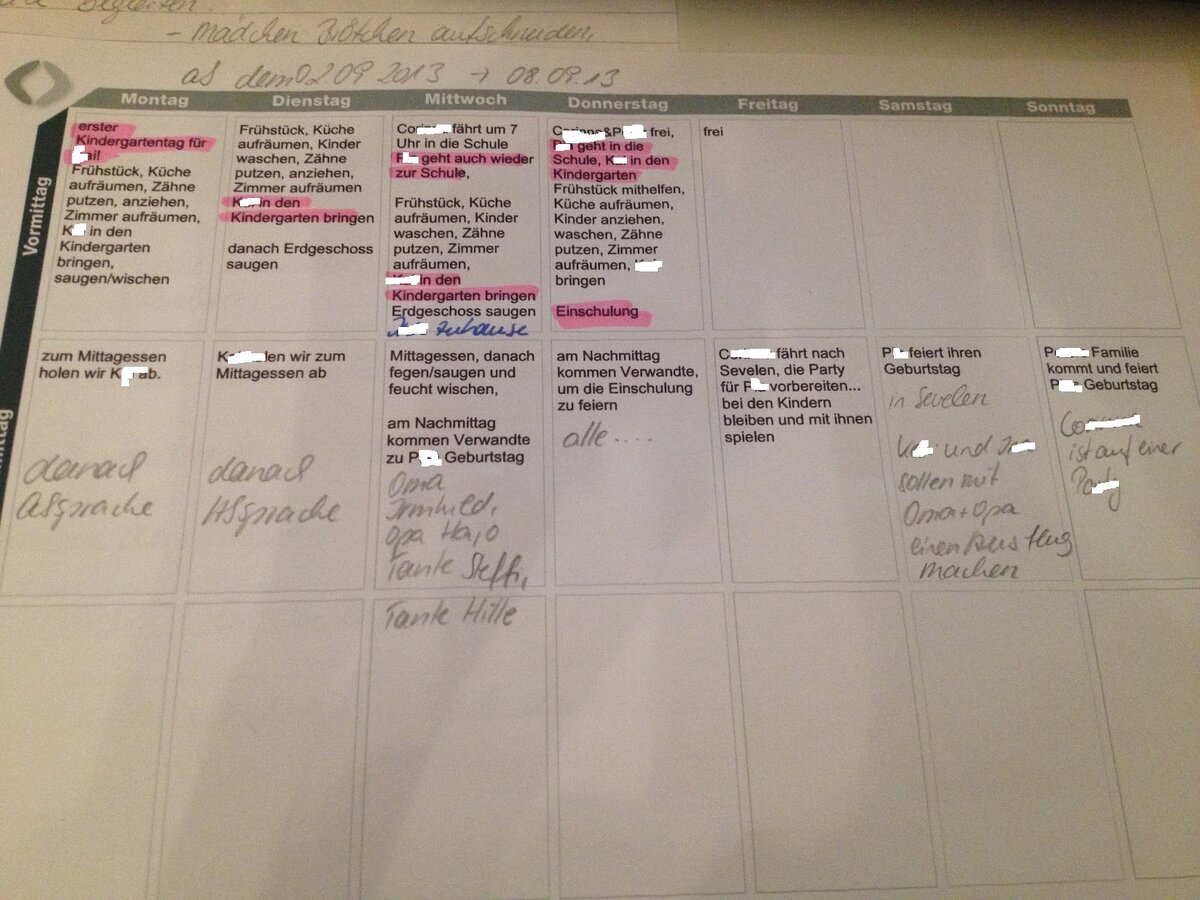 Begleiten.
- Mädchen Brötchen aufschneiden,
ab dem 02.09.2013 → 08.09.13
Montag Dienstag Mittwoch Donnerstag Freitag Samstag Sonntag
Vormittag
erster
Kindergartentag für
ail
Frühstück, Küche
aufräumen, Zähne
putzen, anziehen,
Zimmer aufräumen,
K in den
Kindergarten
bringen,
saugen/wischen
Frühstück, Küche
aufräumen, Kinder
waschen, Zähne
putzen, anziehen,
Zimmer aufräumen
K in den
Kindergarten bringen
danach Erdgeschoss
saugen
Cor fährt um 7
Uhr in die Schule
P geht auch wieder
zur Schule,
Frühstück, Küche
aufräumen, Kinder
waschen, Zähne
putzen, Zimmer
aufräumen,
in den
Kindergarten bringen
Erdgeschoss saugen
zuhause
&P frei,
geht in die
Schule, K in den
Kindergarten
Frühstück mithelfen,
Küche aufräumen,
Kinder anziehen,
waschen, Zähne
putzen, Zimmer
aufräumen,
bringen
Einschulung
frei
zum Mittagessen
holen wir K ab.
danach
Absprache
K len wir zum
Mittagessen ab
danach
Absprache
Mittagessen, danach
fegen/saugen und
feucht wischen,
am Nachmittag
kommen Verwandte
zu P Geburtstag
Oma
Irmhild,
Opa Hajo
Tante Steffi,
Tante Hille
am Nachmittag
kommen Verwandte,
um die Einschulung
zu feiern
alle ....
Co fährt nach
Sevelen, die Party
für P vorbereiten...
bei den Kindern
bleiben und mit ihnen
spielen
P feiert ihren
Geburtstag
in Sevelen
und
sollen mit
Oma + Opa
einen Ausflug
machen
P Familie
kommt und feiert
P Geburtstag
Co
ist auf einer
Party